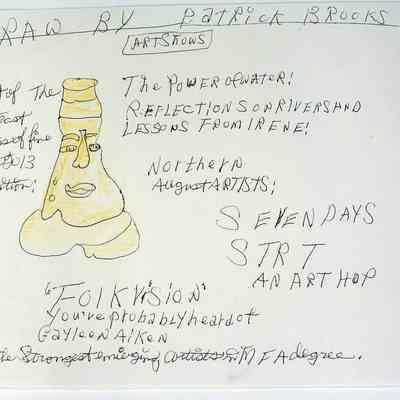 RAW BY PATRICK BROOKS
ARTSHOWS
of The
east
of fine
2013
The POWER OF WATER!
REFLECTIONS ON RIVERS AND
LESSONS FROM IRENE!
Northern
August ARTISTS;
SEVEN DAYS
STRT
AN ART HOP
"FOLK VISION"
You've probably heard of
Gayleen Aiken
the Strongest emerging artists M F A degree.